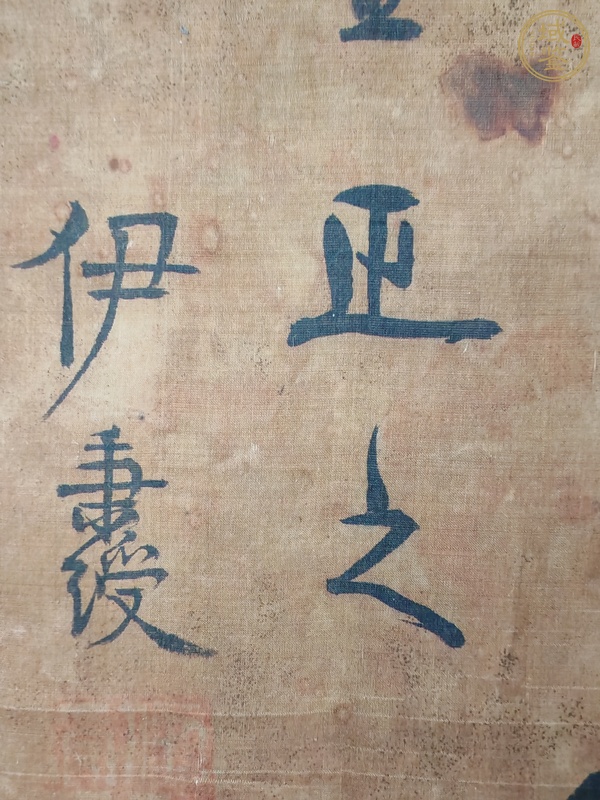 正之
伊秉綬